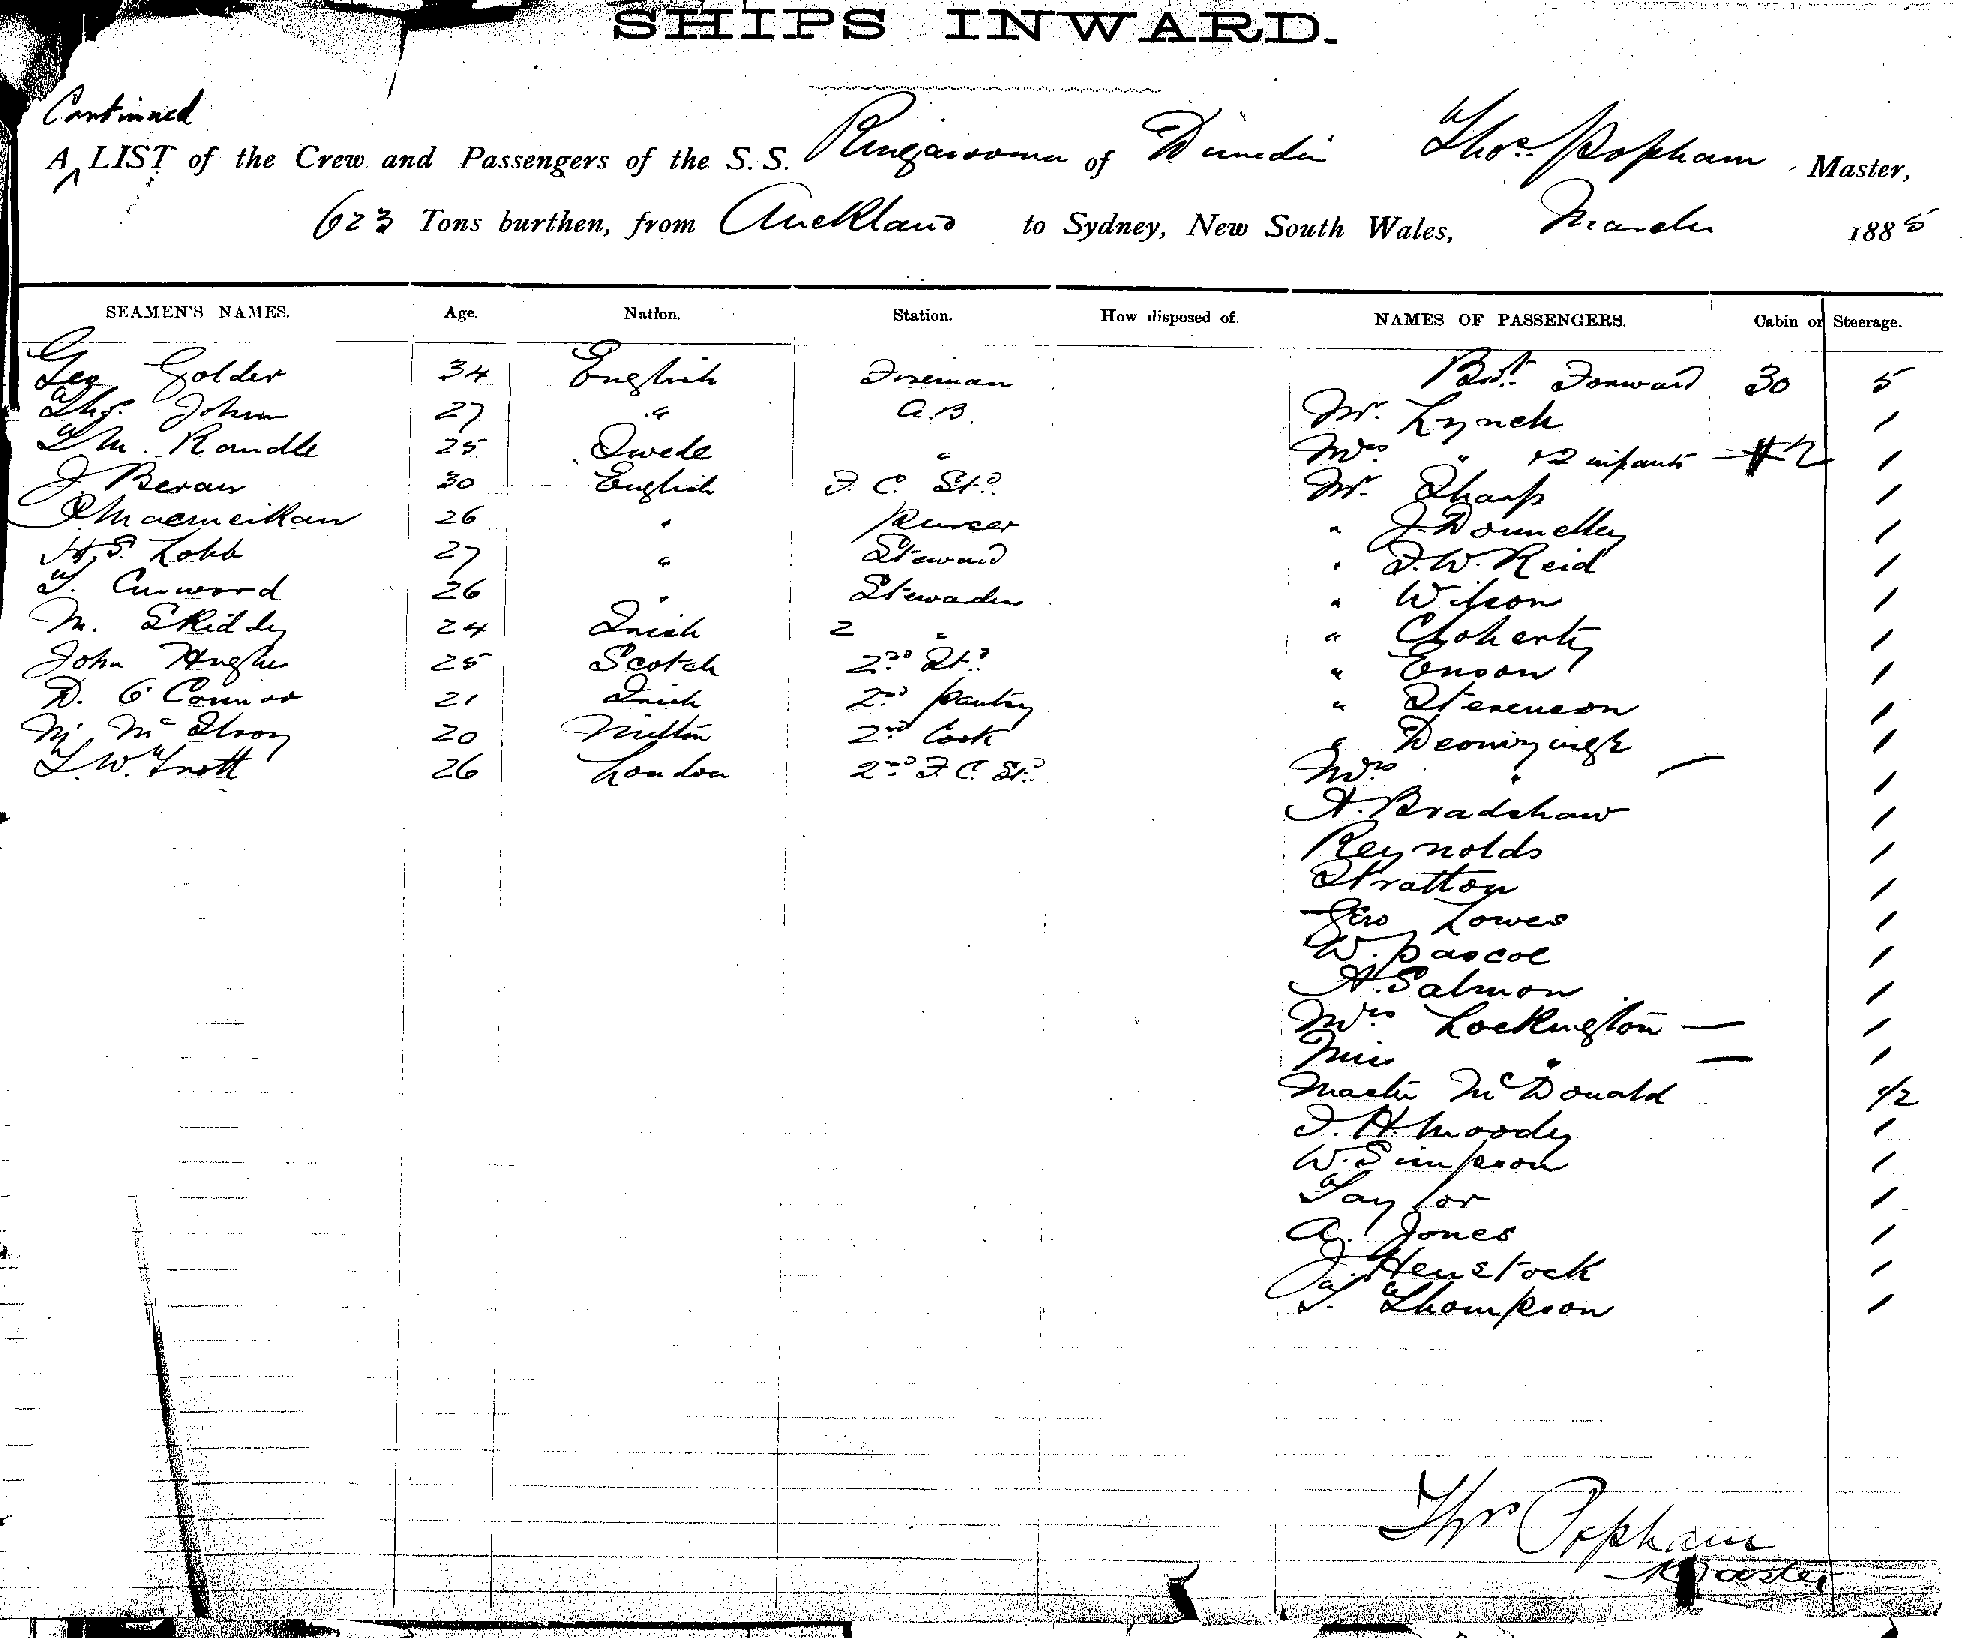 SHIPS INWARD.
Continued
A LIST of the Crew and Passengers of the S.S. Ringarooma of Dunedin Thos. Popham Master,
623 Tons burthen, from Auckland to Sydney, New South Wales, March 1885
SEAMEN'S NAMES. Age. Nation. Station. How disposed of. NAMES OF PASSENGERS. Cabin or Steerage.
Geo Golder 34 English Fireman Brot Forward 30 5
Thos. John 27 " A.B. Mr. Lynch 1
T M. Randle 25 Swede " Mrs " + 2 infants 1
J Bevan 30 English F. C. Std. Mr. Sharp 1
Macmeikan 26 " Purser " J. Donnelley 1
H S. Lobb 27 " Steward " F. W. Reid 1
T. Curword 26 " Stewardess " Wilson 1
M. Skiddy 24 Irish 2 " " Coherty 1
John Hughes 25 Scotch 2nd Std. " Enson 1
D. O'Connor 21 Irish 2nd Pantry " Stevenson 1
M. McIlroy 20 Milton 2nd Cook " 1
T. W. Trott 26 London 2nd F. C. Std. Mrs " 1
A. Bradshaw 1
Reynolds 1
Stratton 1
Geo Lowes 1
W. Pascoe 1
A. Salmon 1
Mrs Lockington — 1
Miss " — 1
Master McDonald 1/2
F. H. Moody 1
W. Simpson 1
Taylor 1
A. Jones 1
J. Henstock 1
T. Thompson 1
Thos Popham
Master